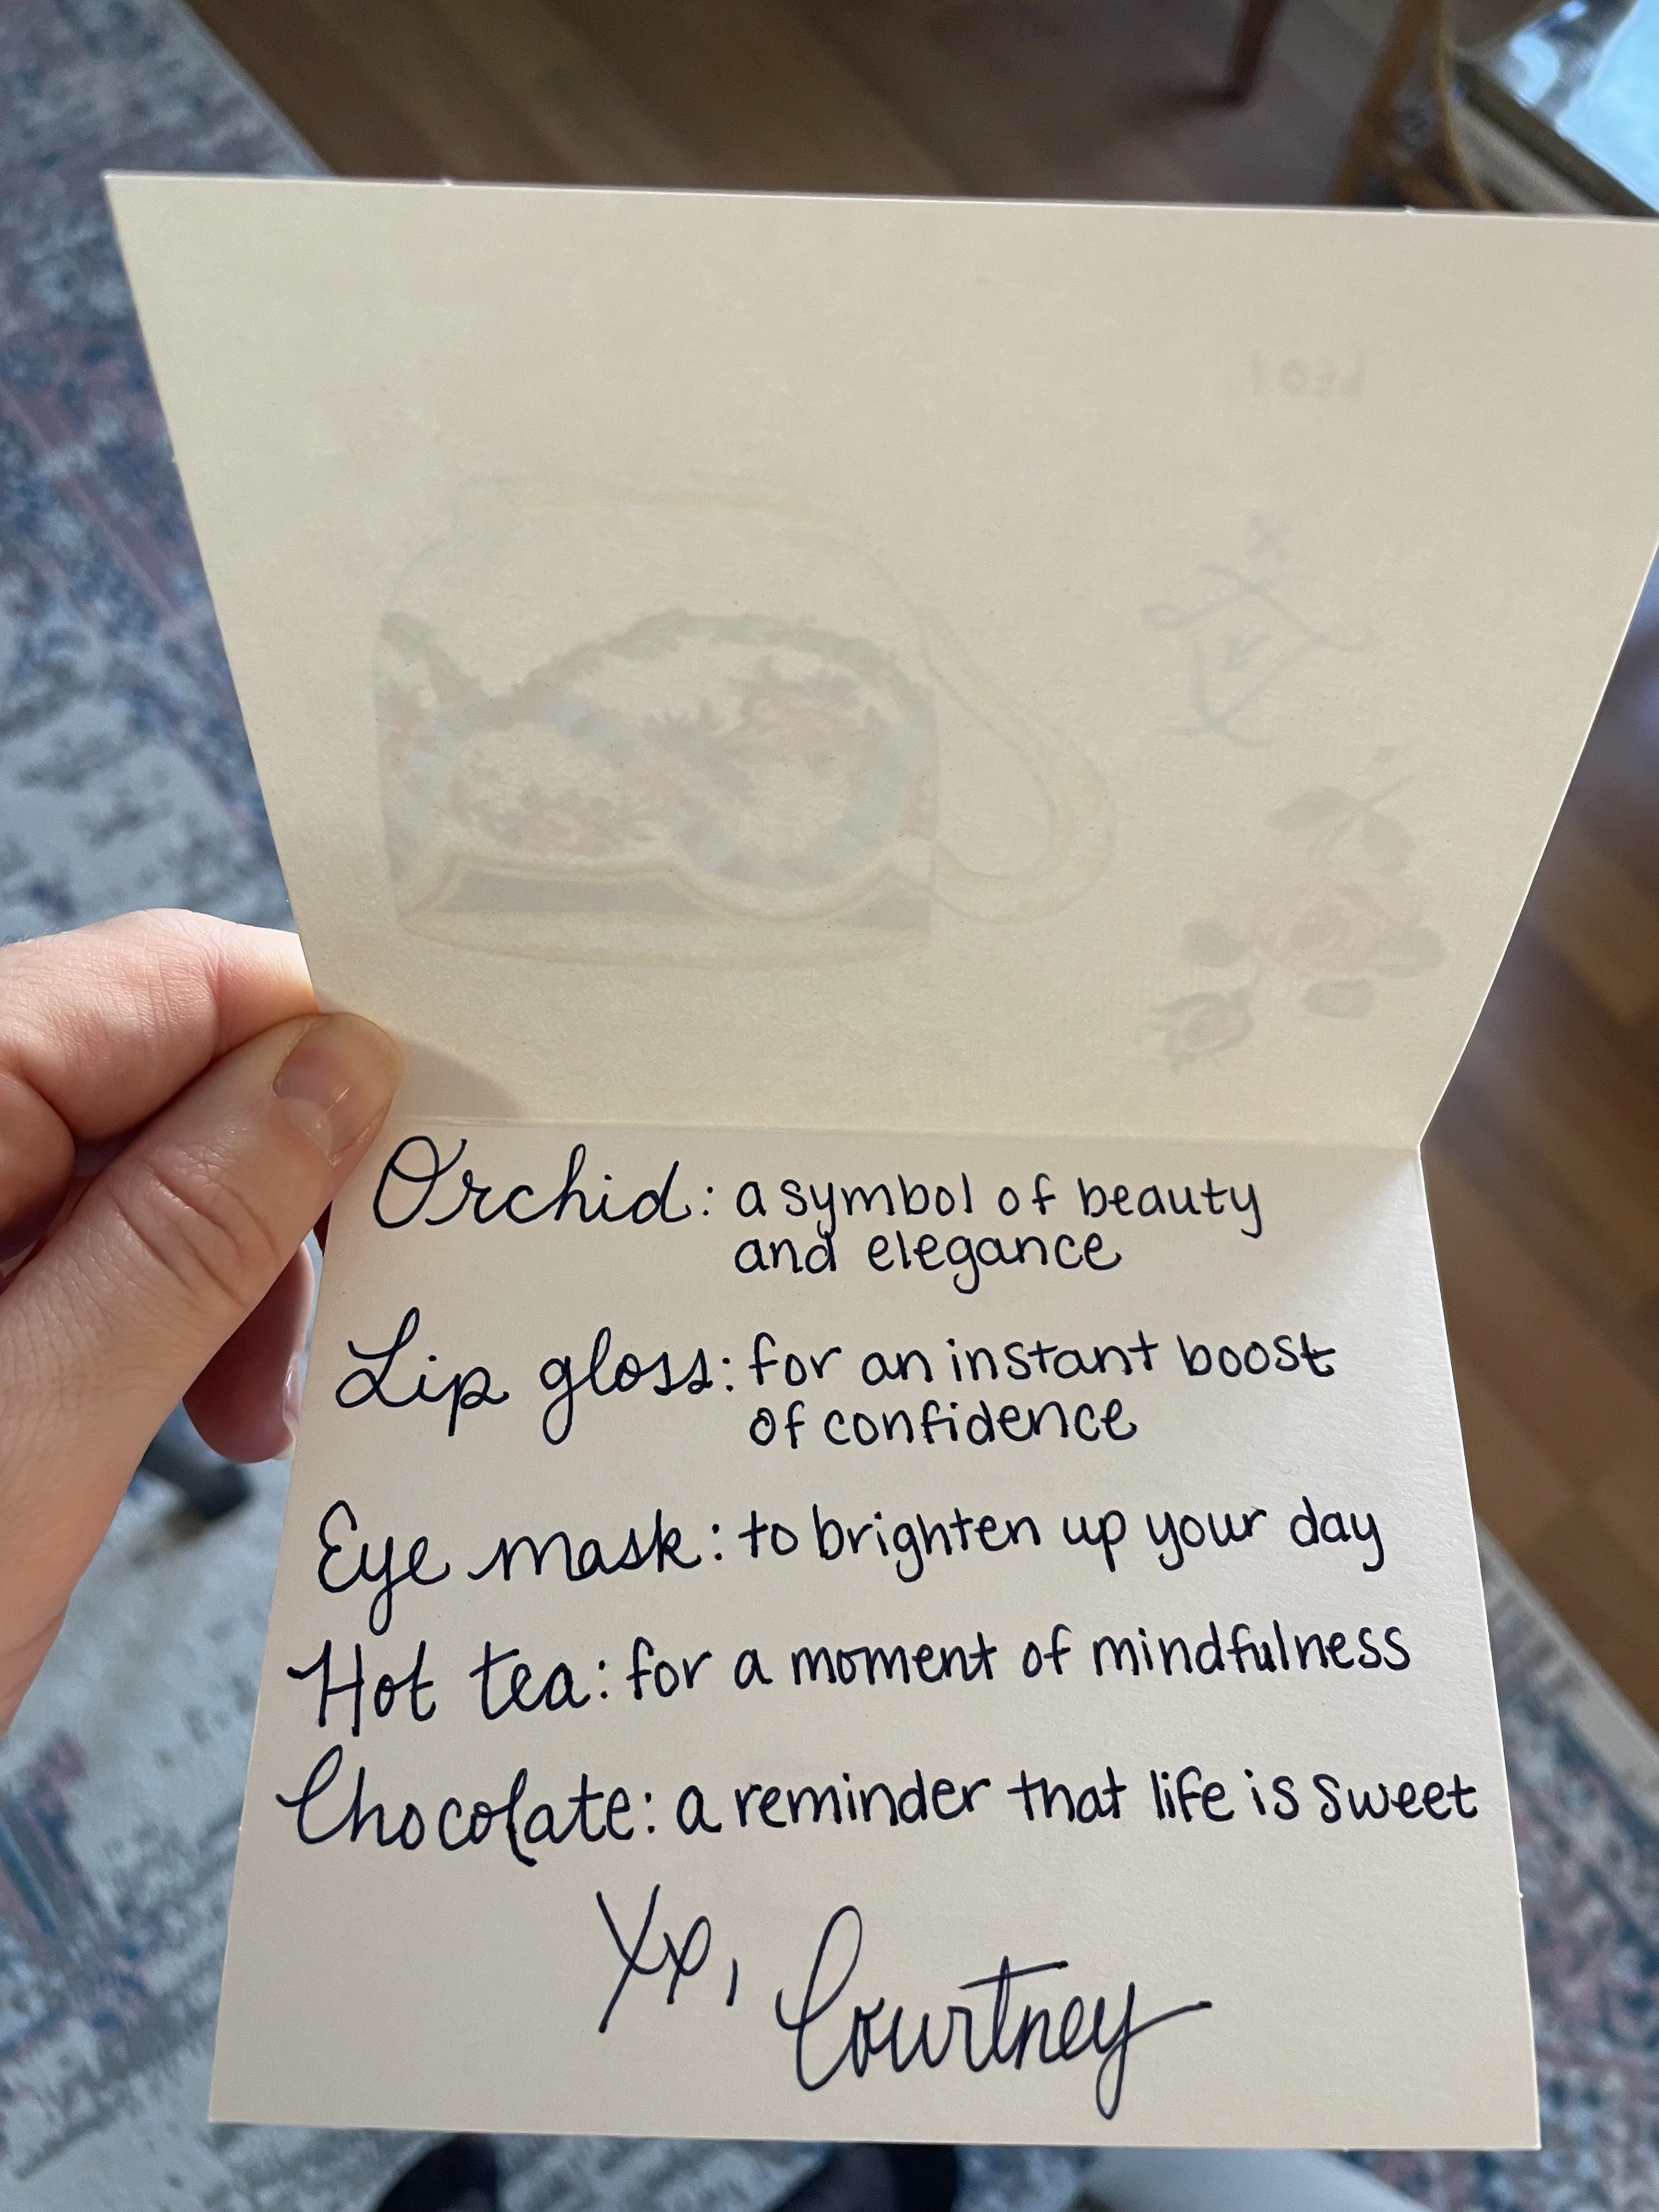 Orchid: a symbol of beauty
and elegance
Lip gloss: for an instant boost
of confidence
Eye mask: to brighten up your day
Hot tea: for a moment of mindfulness
Chocolate: a reminder that life is sweet
Courtney